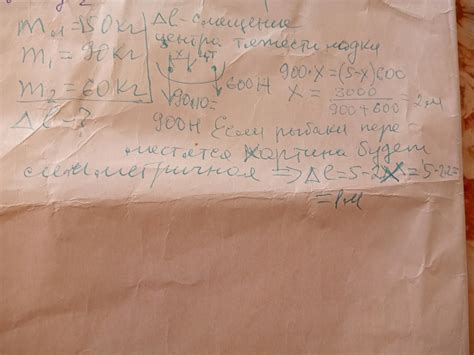 m л = 150 кг
m₁ = 90 кг
m₂ = 60 кг
Δl - ?
Δl - смещение
центра тяжести лодки
900·x = (5-x)600
x = 3000 / (900+600) = 2 м
600 Н
900 Н
Если рыбаки пере
местятся картина будет
симметричная ⇒ Δl = 5-2x = 5-2·2=
= 1 м